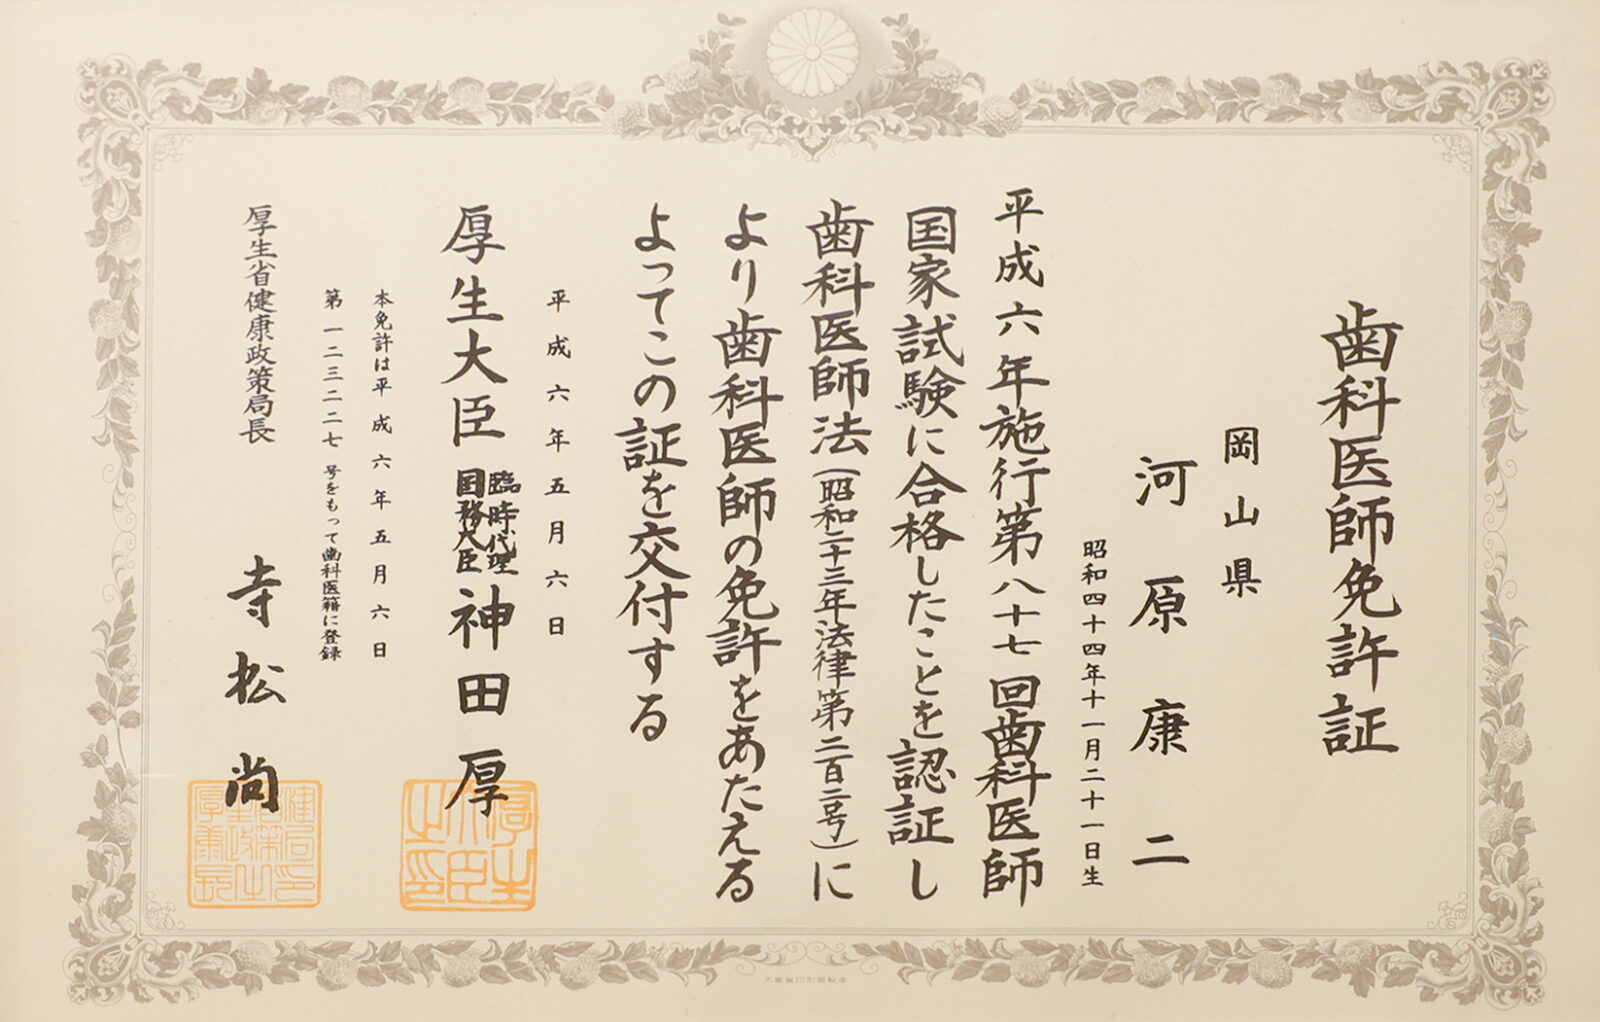 歯科医師免許証
岡山県
河原康二
昭和四十四年十一月二十一日生
平成六年施行第八十七回歯科医師
国家試験に合格したことを認証し
歯科医師法(昭和二十三年法律第二百二号)に
より歯科医師の免許をあたえる
よってこの証を交付する
平成六年五月六日
厚生大臣
臨時代理
国務大臣
神田厚
本免許は平成六年五月六日
第一二三二二七号をもって歯科医籍に登録
厚生省健康政策局長
寺松尚